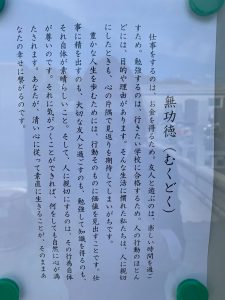 無功徳（むくどく）
仕事をするのは、お金を得るため。友人と遊ぶのは、楽しい時間を過ご
すため。勉強するのは、行きたい学校に合格するため。人の行動のほとん
どには、目的や理由があります。そんな生活に慣れた私たちは、人に親切
にしたときも、心の片隅で見返りを期待してしまいがちです。
豊かな人生を歩むためには、行動そのものに価値を見出すことです。仕
事に精を出すのも、大切な友人と過ごすのも、勉強して知識を得るのも、
それ自体が素晴らしいこと。そして、人に親切にするのは、その行為自体
が尊いのです。それに気がつくことができれば、何をしても自然に心が満
たされます。あなたが、清い心に従って素直に生きることが、そのままあ
なたの幸せに繋がるのです。